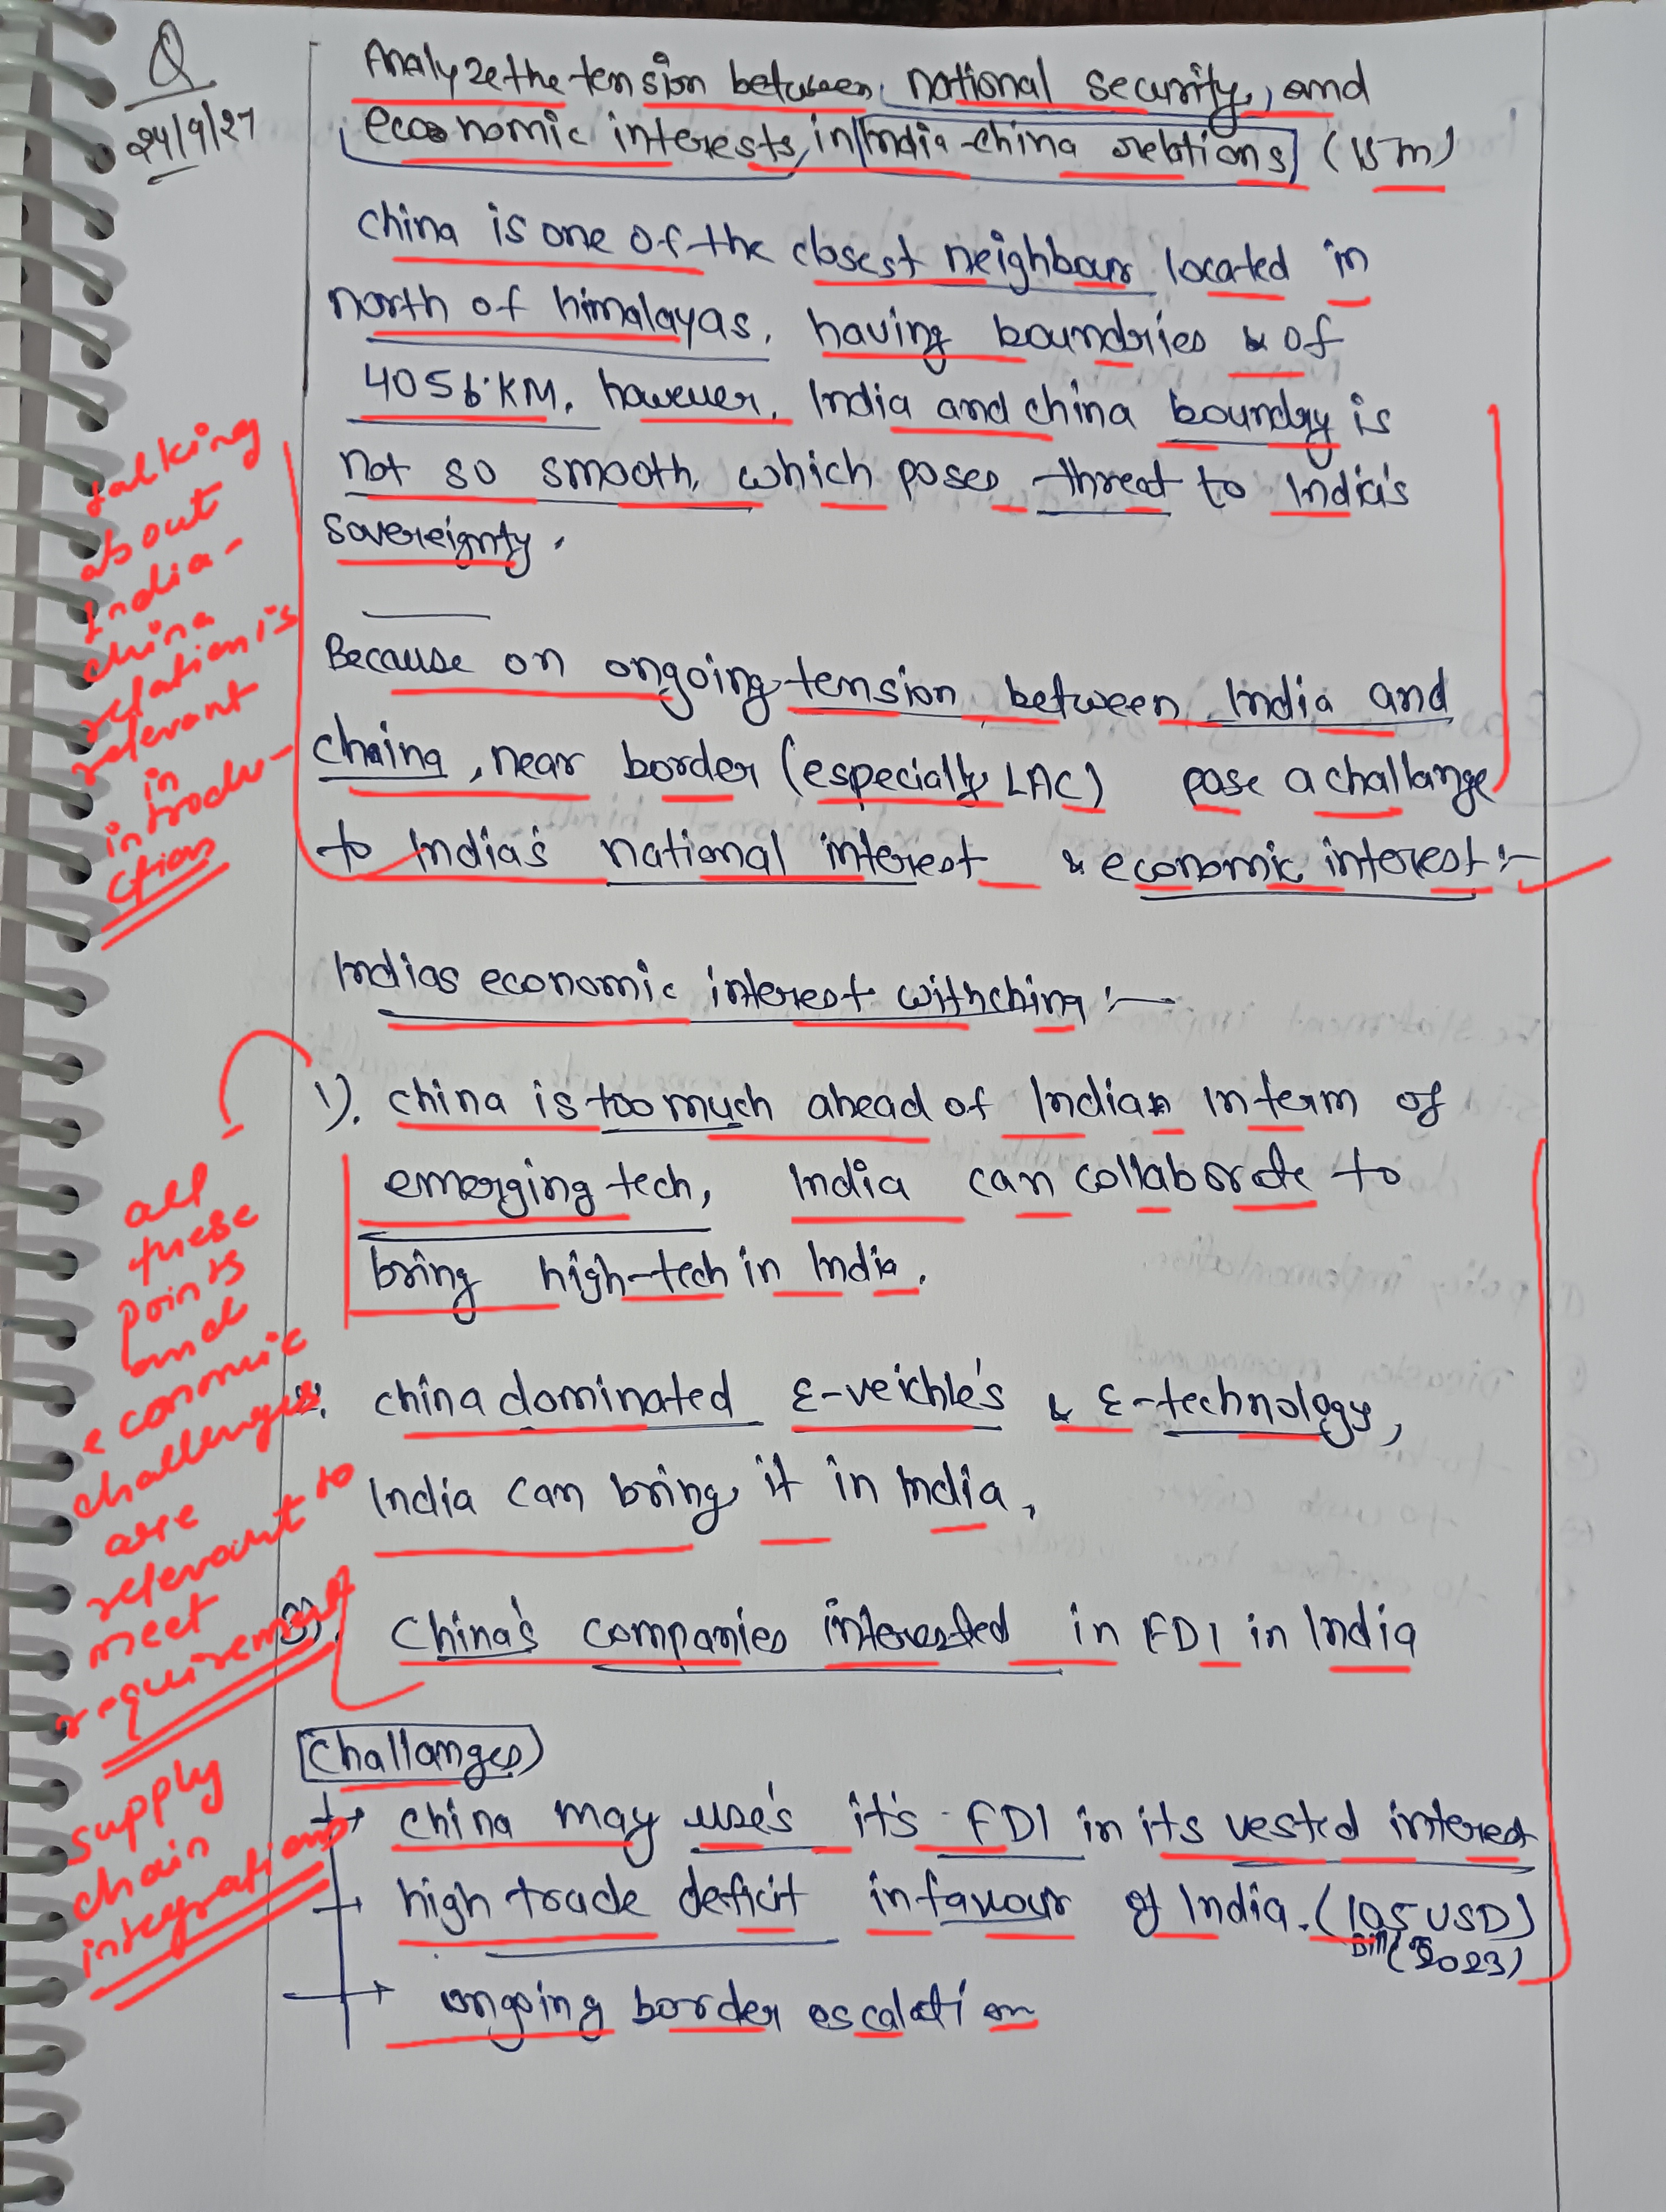 Q
24/9/27
Analyze the tension between national security, and
economic interests, in India-china relations (15m)
china is one of the closest neighbour located in
north of himalayas, having boundries & of
4056 KM, however, India and china boundry is
not so smooth, which poses threat to India's
sovereignty.
Because on ongoing tension between India and
china, near border (especially LAC) pose a challange
to India's national interest & economic interest :-
talking
about
India-
china
relation is
relevant
in
introdu-
ction
Indias economic interest with china :-
1). china is too much ahead of Indian in term of
emerging tech, India can collaborate to
bring high-tech in India.
2. china dominated E-veichle's & E-technology,
India can bring it in India,
3). China's companies interested in FDI in India
all
these
points
and
economic
challenges
are
relevant to
meet
requirement
Challanges
→ china may use's it's FDI in its vested interest
→ high trade deficit in favour of India. (105 USD)
Bill (2023)
→ ongoing border escalation
supply
chain
integrations